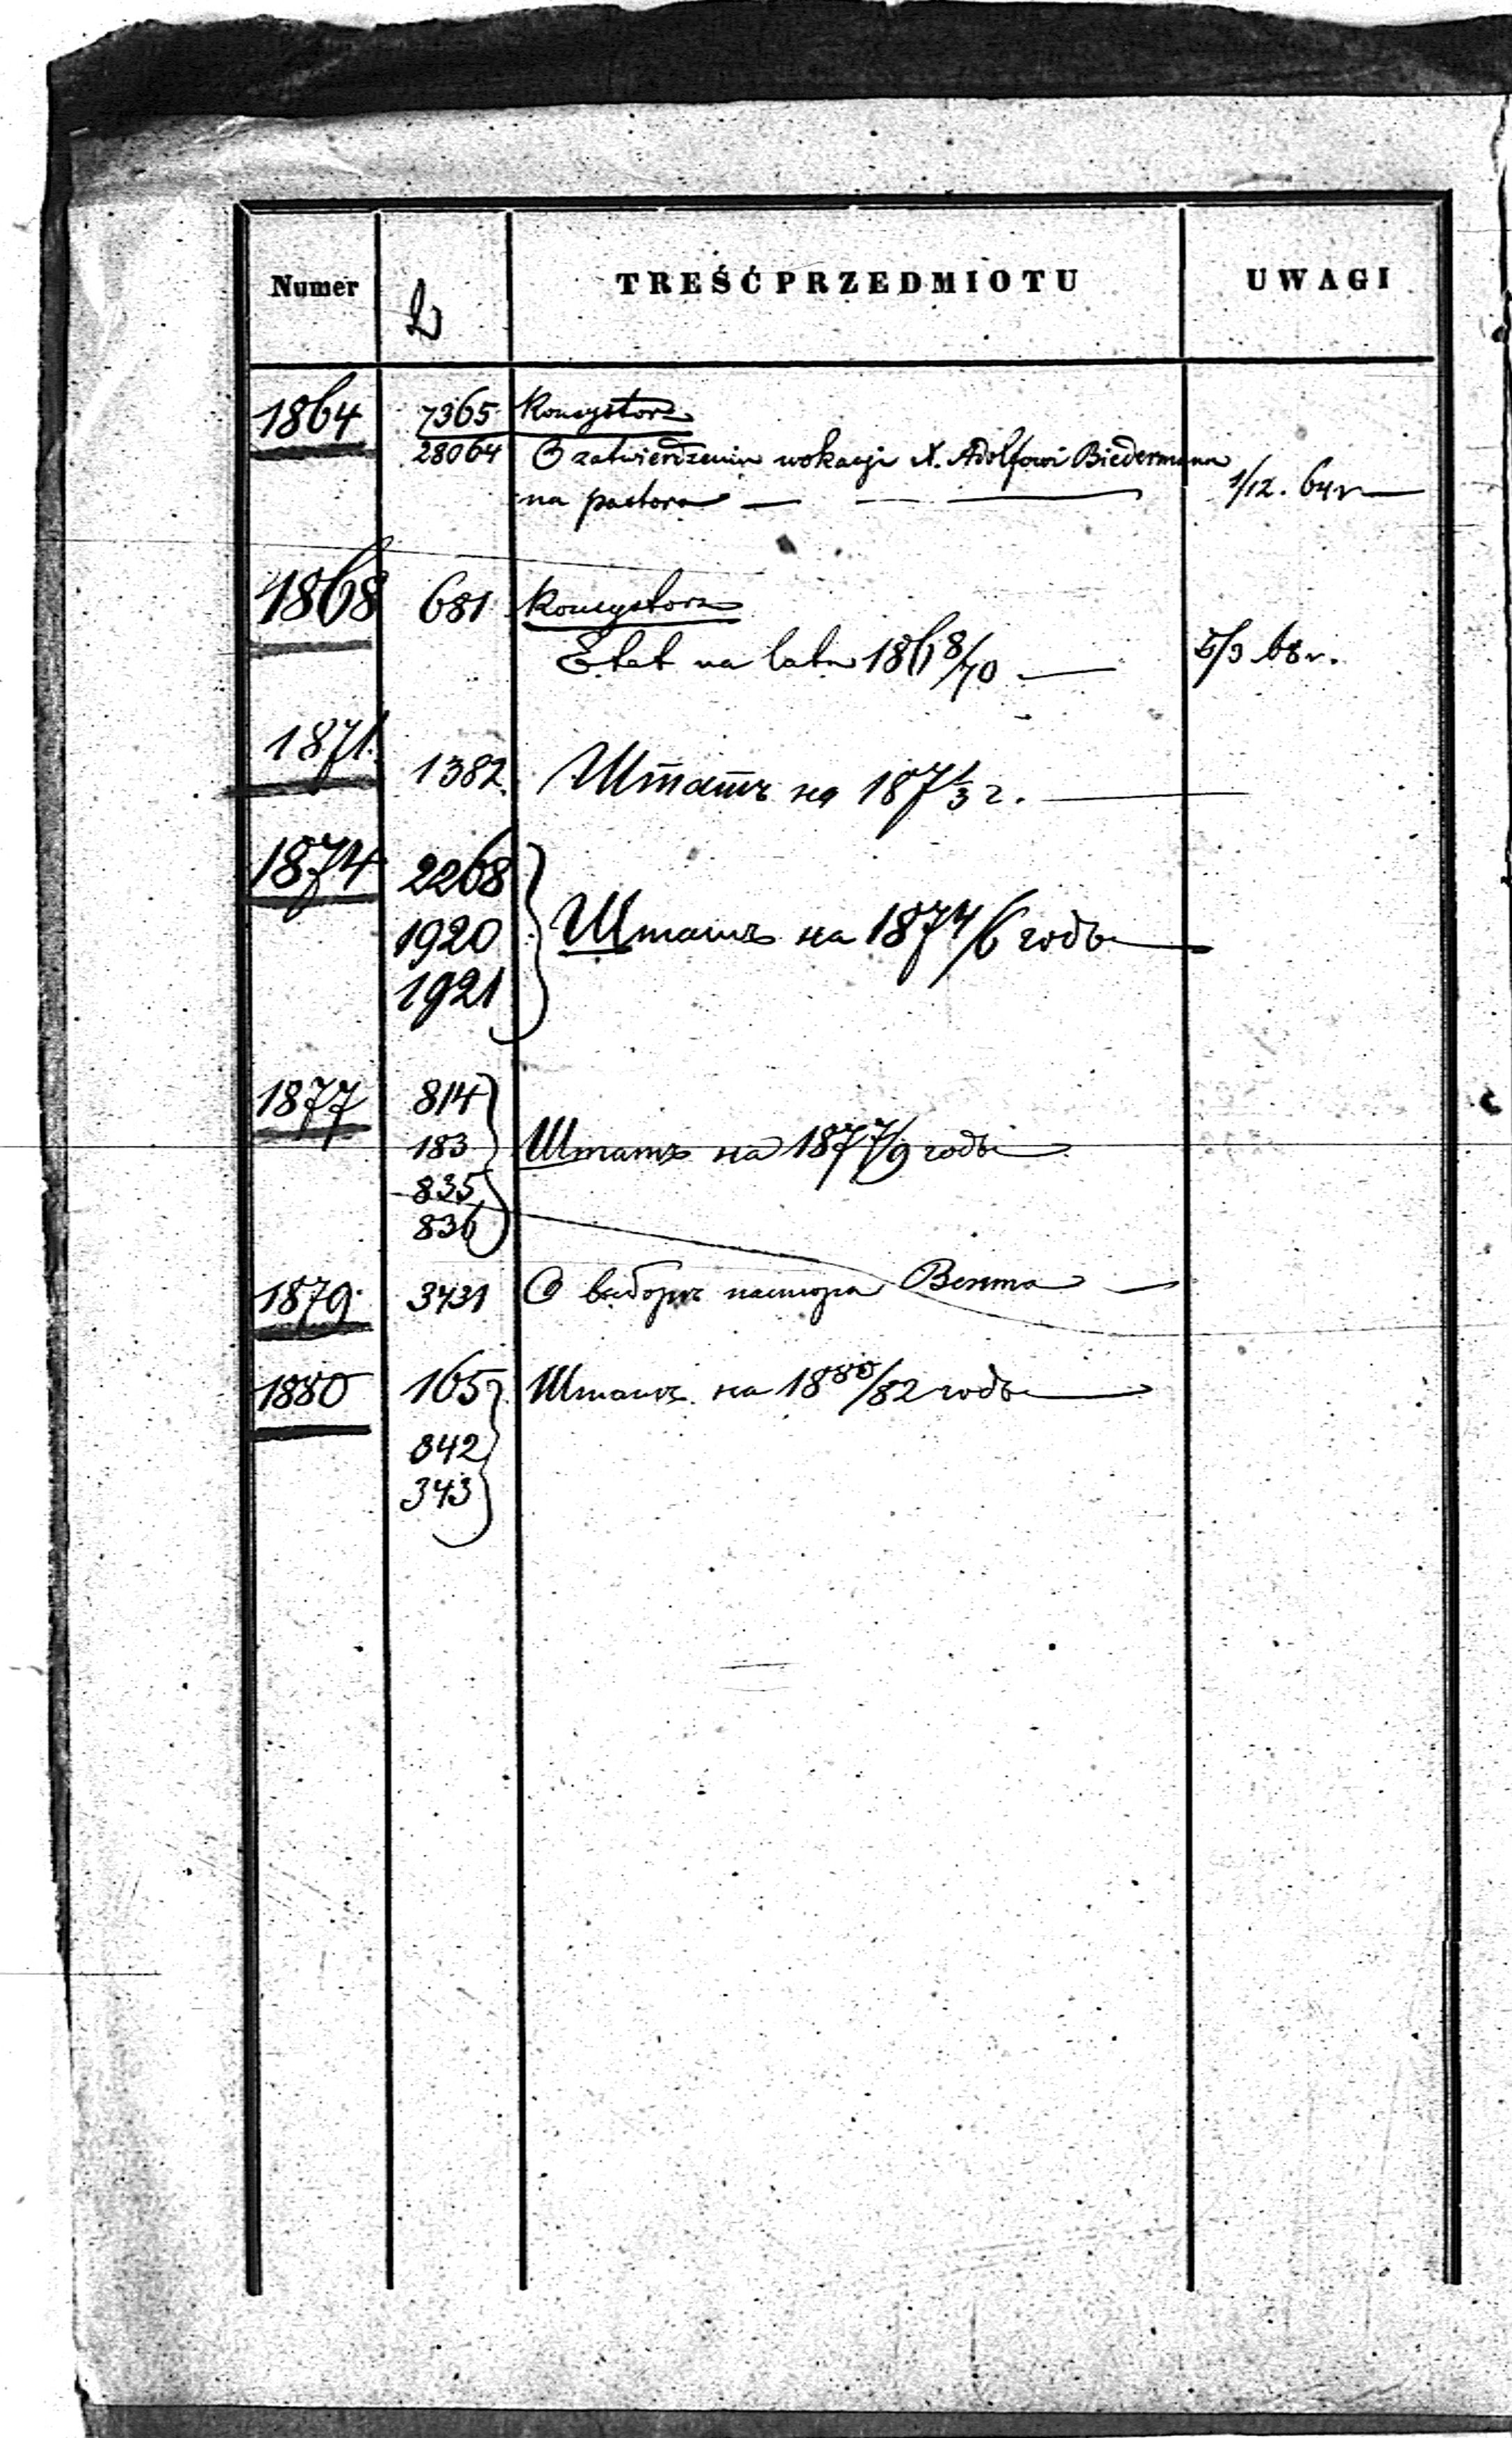 Numer TREŚĆ PRZEDMIOTU UWAGI
1864 7365 Konsystorz
28064 O zatwierdzeniu wokacji X. Adolfowi Biedermann
na pastora — — 1/12. 64 r —
1868 681 Konsystorz
Etat na lata 1868/70 — 5/3 68 r.
1871. 1382. Штатъ на 187 1/3 г. —
1874 2268
1920 Штатъ на 187 4/6 годы —
1921
1877 814
183 Штатъ на 187 7/9 годы —
835
836
1879. 3431 О выборѣ пастора Вента —
1880 165 Штатъ на 1880/82 годы —
842
343